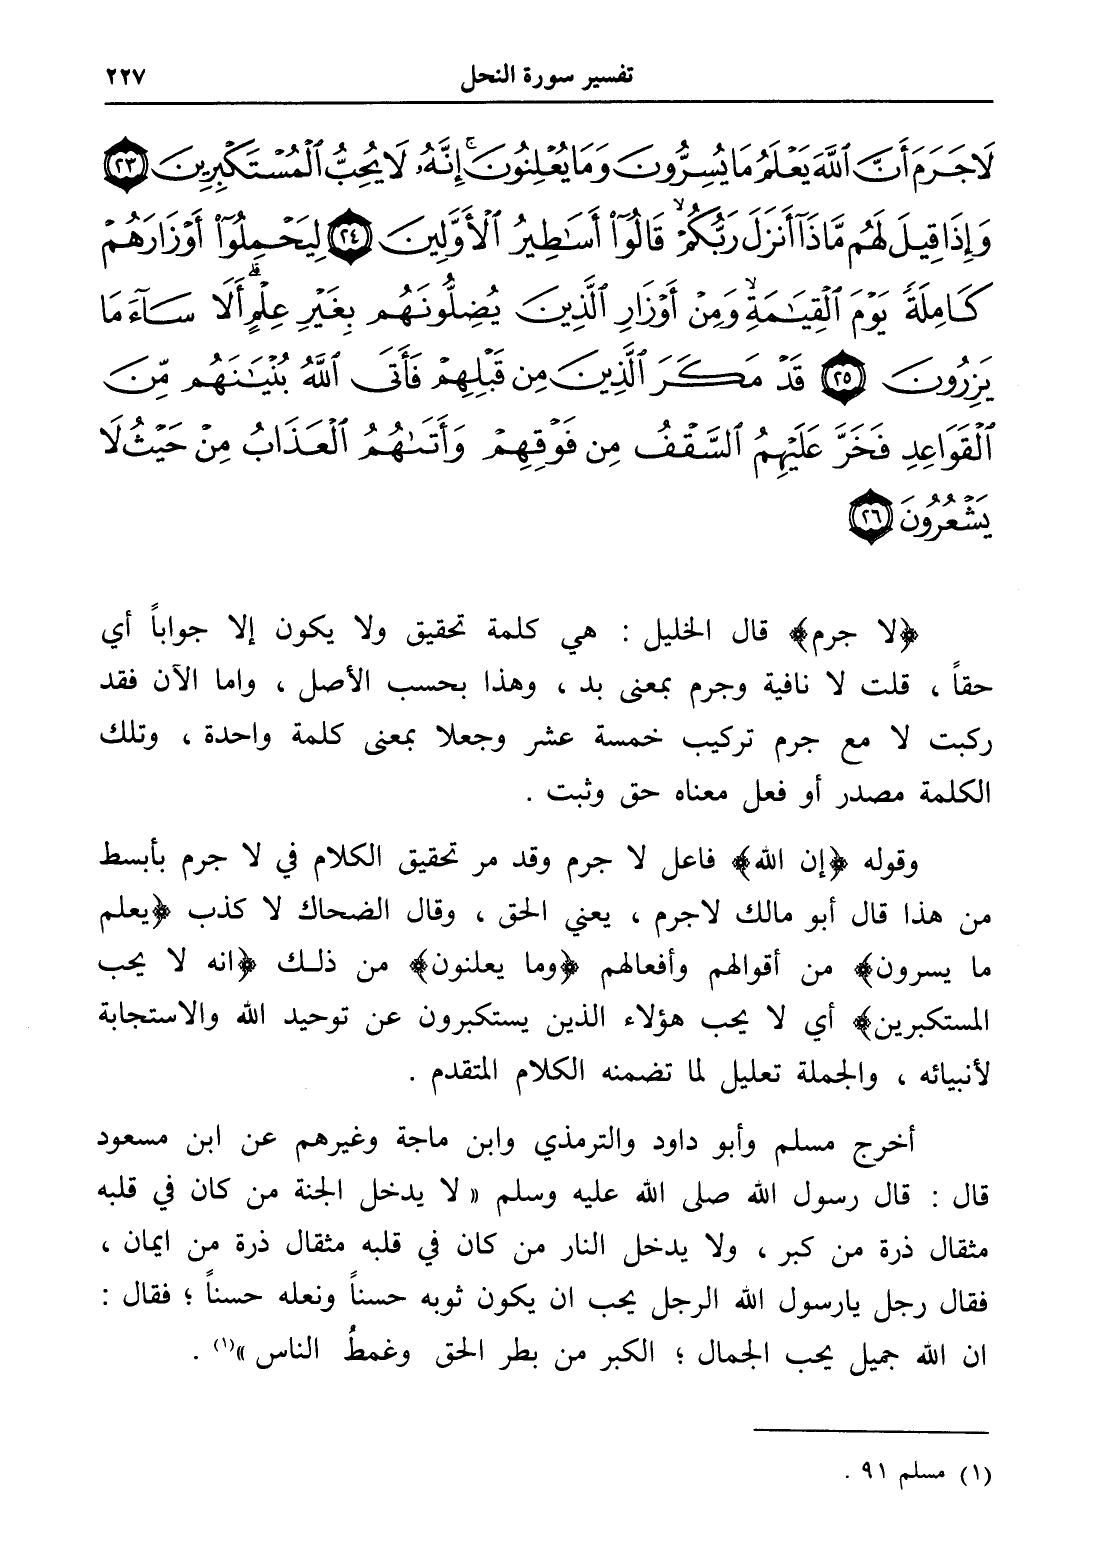 تفسير سورة النحل ٢٢٧
لَا جَرَمَ أَنَّ ٱللَّهَ يَعْلَمُ مَا يُسِرُّونَ وَمَا يُعْلِنُونَ ۚ إِنَّهُۥ لَا يُحِبُّ ٱلْمُسْتَكْبِرِينَ ٢٣
وَإِذَا قِيلَ لَهُم مَّاذَآ أَنزَلَ رَبُّكُمْ ۙ قَالُوٓا۟ أَسَٰطِيرُ ٱلْأَوَّلِينَ ٢٤ لِيَحْمِلُوٓا۟ أَوْزَارَهُمْ
كَامِلَةً يَوْمَ ٱلْقِيَٰمَةِ ۙ وَمِنْ أَوْزَارِ ٱلَّذِينَ يُضِلُّونَهُم بِغَيْرِ عِلْمٍ ۗ أَلَا سَآءَ مَا
يَزِرُونَ ٢٥ قَدْ مَكَرَ ٱلَّذِينَ مِن قَبْلِهِمْ فَأَتَى ٱللَّهُ بُنْيَٰنَهُم مِّنَ
ٱلْقَوَاعِدِ فَخَرَّ عَلَيْهِمُ ٱلسَّقْفُ مِن فَوْقِهِمْ وَأَتَىٰهُمُ ٱلْعَذَابُ مِنْ حَيْثُ لَا
يَشْعُرُونَ ٢٦
﴿لا جرم﴾ قال الخليل : هي كلمة تحقيق ولا يكون إلا جواباً أي
حقاً ، قلت لا نافية وجرم بمعنى بد ، وهذا بحسب الأصل ، واما الآن فقد
ركبت لا مع جرم تركيب خمسة عشر وجعلا بمعنى كلمة واحدة ، وتلك
الكلمة مصدر أو فعل معناه حق وثبت .
وقوله ﴿إن الله﴾ فاعل لا جرم وقد مر تحقيق الكلام في لا جرم بأبسط
من هذا قال أبو مالك لاجرم ، يعني الحق ، وقال الضحاك لا كذب ﴿يعلم
ما يسرون﴾ من أقوالهم وأفعالهم ﴿وما يعلنون﴾ من ذلك ﴿انه لا يحب
المستكبرين﴾ أي لا يحب هؤلاء الذين يستكبرون عن توحيد الله والاستجابة
لأنبيائه ، والجملة تعليل لما تضمنه الكلام المتقدم .
أخرج مسلم وأبو داود والترمذي وابن ماجة وغيرهم عن ابن مسعود
قال : قال رسول الله صلى الله عليه وسلم « لا يدخل الجنة من كان في قلبه
مثقال ذرة من كبر ، ولا يدخل النار من كان في قلبه مثقال ذرة من ايمان ،
فقال رجل يارسول الله الرجل يحب ان يكون ثوبه حسناً ونعله حسناً ؛ فقال :
ان الله جميل يحب الجمال ؛ الكبر من بطر الحق وغمطُ الناس »(١) .
(١) مسلم ٩١ .